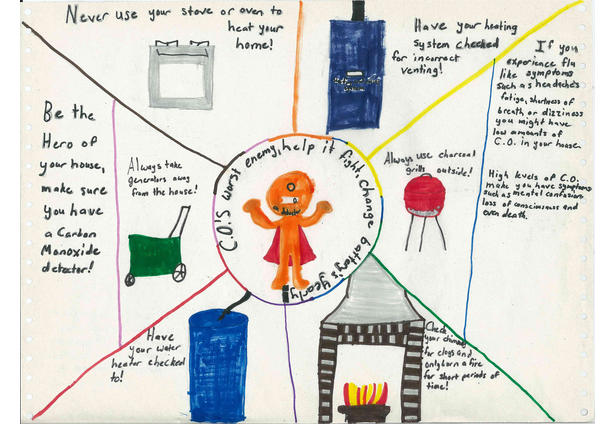 Never use your stove or oven to
heat your
home!
Have your heating
system checked
for incorrect
venting!
If you
experience flu
like symptoms
such as headaches
fatige, shortness of
breath, or dizziness
you might have
low amounts of
C.O. in your house.
High levels of C.O.
make you have symptoms
such as mental confusion
loss of consciousness and
even death.
Be the
Hero of
your house,
make sure
you have
a Carbon
Monoxide
detector!
Always take
generators away
from the house!
C.O.'s worst enemy, help it fight, change battery's yearly
detector
Always use charcoal
grills outside!
Have
your water
heater checked
to!
Check
your chimney
for clogs and
only burn a fire
for short periods of
time!